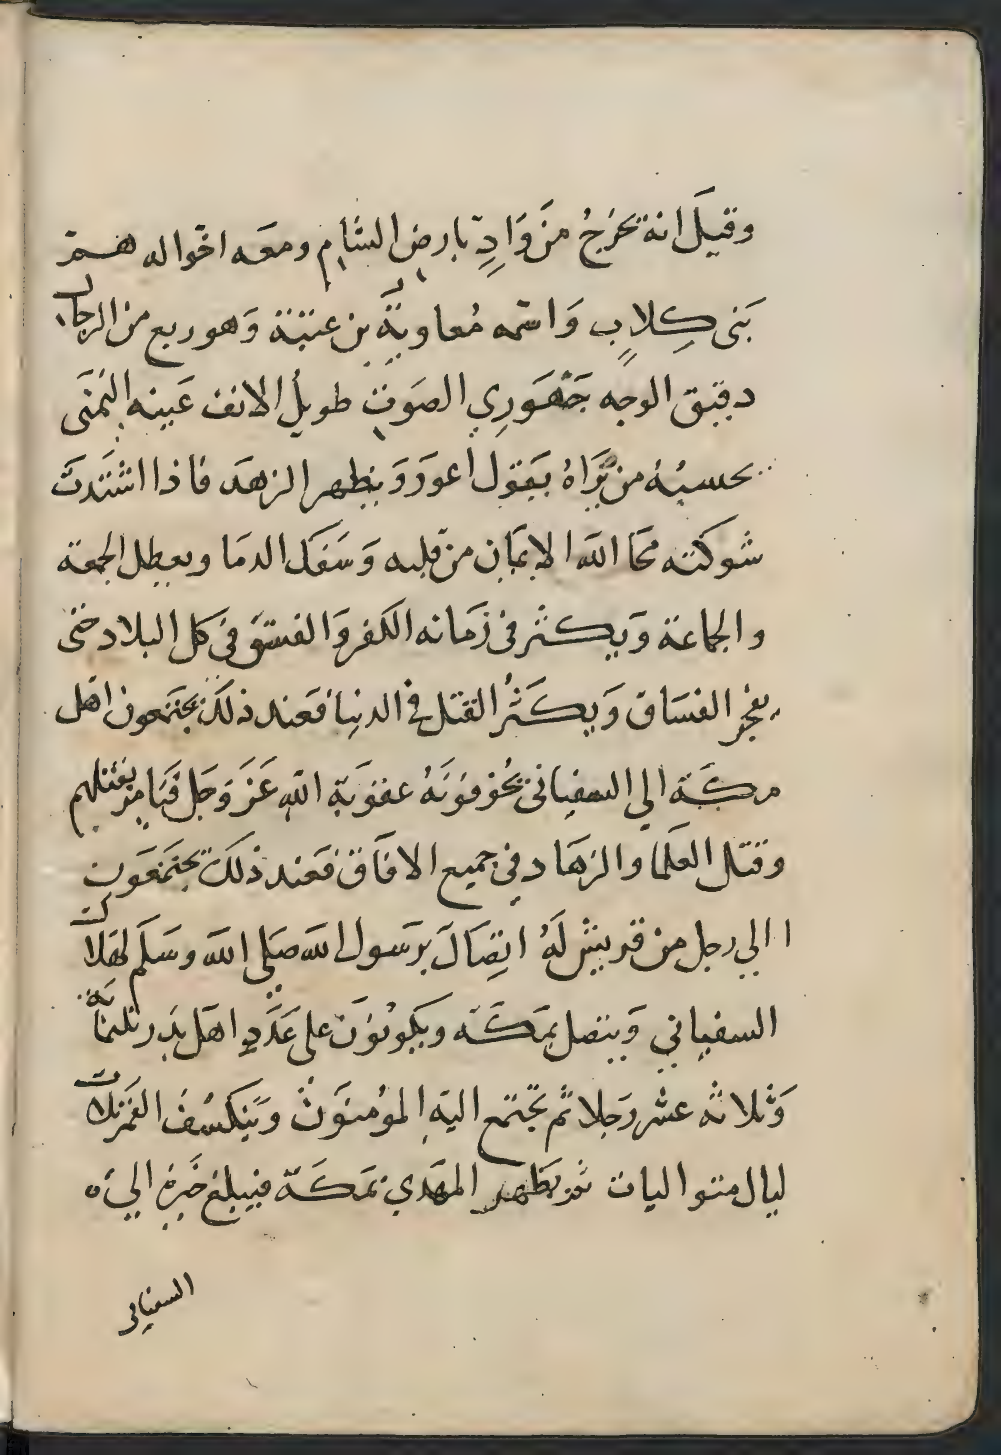 وقيل انه يخرج من وَادٍ بارض الشام ومعه اخواله هم
بنى كلاب وَاسمه مُعاوية بن عنبثة وَهو ربع من الرجال
دقيق الوجه جَهْوَرِي الصَوت طويل الانف عَينه اليُمنَى
يحسبُه من يَرَاهُ يَقول أعور وَيظهر الزهد فاذا اشتَدت
شوكته محَا الله الايمان من قلبه وَسَفك الدمَا ويعطل الجمعة
والجماعة وَيكثر فى زَمانه الكفر وَالفسق فى كل البلاد حتى
يفجر الفسَاق وَيكثُر القتل في الدنيا فعند ذلك يجتَمعون اهل
مكة الي السفيانى يُخوفونَهُ عقوبة الله عَزَ وَجل فيَامر بقتلهم
وقتل العلما والزهاد في جميع الافَاق فعند ذلك يجتمَعَون
ا الي رجل من قريش لَهُ اتِصَال برَسول الله صَلى الله وسَلم لهلاك
السفياني وَيتصل بمَكَة ويكونُون على عَدَدِ اهل بَدر ثلثماية
وَثلاثه عشر رَجلا ثم تجتمع اليه المؤمنوَن وَينكسُف القمر ثلاث
ليال متواليات ثم يَظهر المهَدي بمَكَة فيبلغ خَبره الي
السفيانى